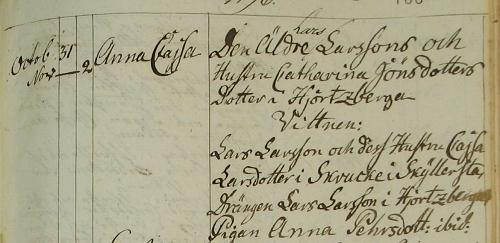 Octob. 31 Anna Cajsa Den Äldre Lars Larssons och
Nov. — 2 Hustru Catharina Jönsdotters
Dotter i Hjortzberga
Vittnen:
Lars Larsson och dess Hustru Cajsa
Larsdotter i Skrucke i Skyllersta,
Drängen Lars Larsson i Hjortzberga
Pigan Anna Pehrsdott: ibid: